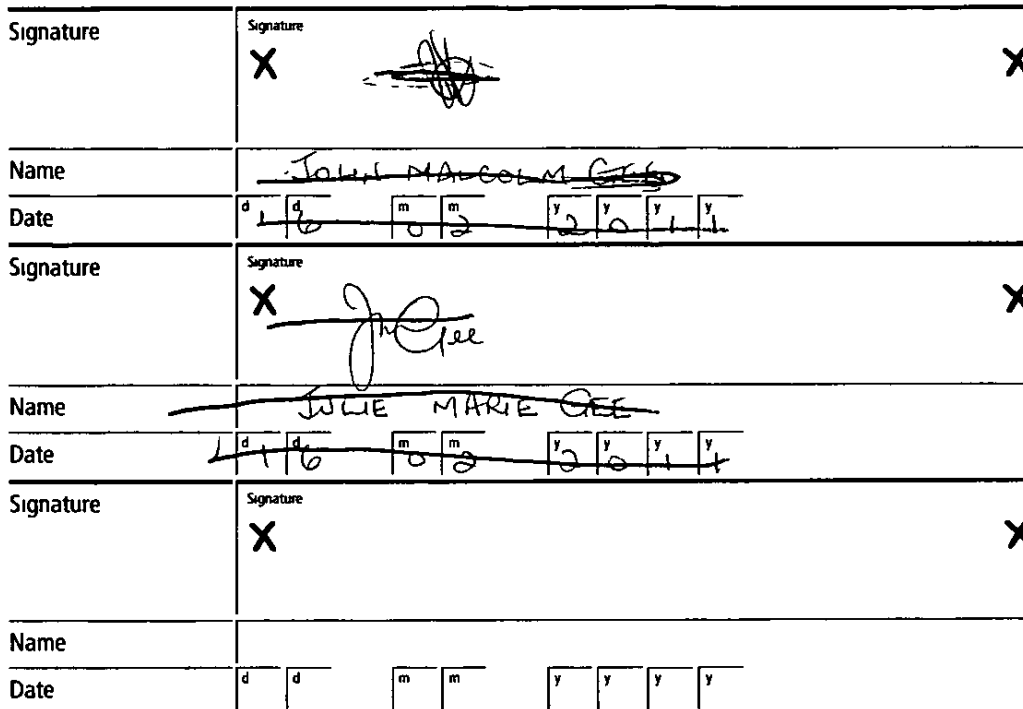 Signature Signature
X X
Name JOHN MALCOLM GEE
Date d d m m y y y y
16 02 2011
Signature Signature
X JM Gee X
Name JULIE MARIE GEE
Date d d m m y y y y
16 02 2011
Signature Signature
X X
Name
Date d d m m y y y y